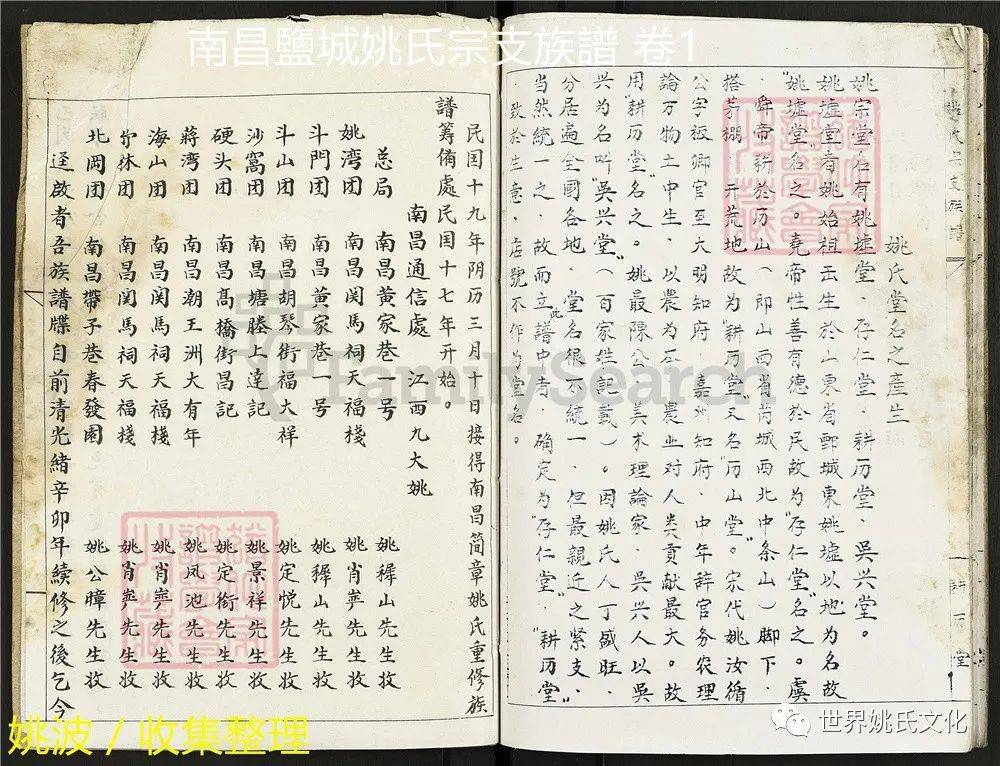 南昌鹽城姚氏宗支族譜 卷1
姚氏堂名之產生
姚宗堂名有姚墟堂．存仁堂．耕历堂．吳兴堂。
姚墟堂有姚始祖云生於山東省鄄城東姚墟以地为名故
"姚墟堂"名之。堯帝性善有德於民故为"存仁堂"名之。虞
舜帝耕於历山（即山西省芮城西北中条山）脚下．
搭茅棚．开荒地故为"耕历堂"又名历山堂。宋代姚汝循
公字板卿官至大明知府．嘉州知府．中年辞官务农理
論万物土中生．以農为正．農业对人类貢献最大。故
用"耕历堂"名之。姚最陳公．美术理論家．吳兴人以吳
兴为名叫"吳兴堂"（百家姓記載）。因姚氏人丁盛旺．
分居遍全國各地．堂名很不統一．但最親近之緊支．
当然統一之．故而立此譜中者．确定为"存仁堂"．"耕历堂"
．致於生意．店號不作为堂名。
耕历堂
民国十九年阴历三月十日接得南昌简章姚氏重修族
譜筹備處民国十七年开始。
南昌通信處 江西九大姚
总局 南昌黄家巷一号 姚穉山先生收
姚湾团 南昌関馬祠天福棧 姚肖㝉先生收
斗門团 南昌黄家巷一号 姚穉山先生收
斗山团 南昌胡琴街福大祥 姚定悦先生收
沙窩团 南昌塘塍上逹記 姚景祥先生收
硬头团 南昌髙橋街昌記 姚定銜先生收
蔣湾团 南昌潮王洲大有年 姚凤池先生收
海山团 南昌関馬祠天福棧 姚肖㝉先生收
团 南昌関馬祠天福棧 姚肖㝉先生收
北岡团 南昌帶子巷春發園 姚公暲先生收
迳啟者吾族譜牒自前清光緒辛卯年續修之後乞今
FamilySearch
姚波／收集整理
世界姚氏文化